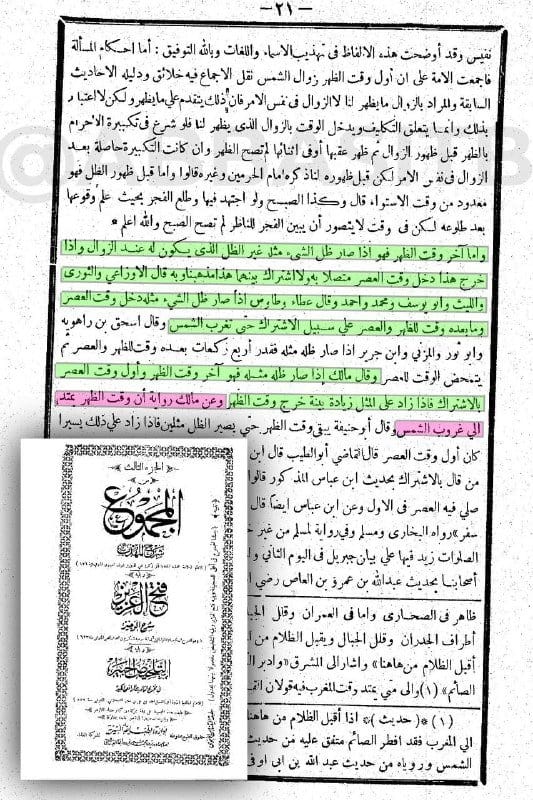 — ٢١ —
نفيس وقد أوضحت هذه الالفاظ فى تهذيب الاسماء واللغات وبالله التوفيق : أما احكام المسألة
فاجمعت الامة على ان أول وقت الظهر زوال الشمس نقل الاجماع فيه خلائق ودليله الاحاديث
السابقة والمراد بالزوال ما يظهر لنا لا الزوال فى نفس الامر فان ذلك يتقدم على ما يظهر ولكن لا اعتبار
بذلك وانما يتعلق التكليف ويدخل الوقت بالزوال الذى يظهر لنا فلو شرع فى تكبيرة الاحرام
بالظهر قبل ظهور الزوال ثم ظهر عقبها أو فى اثنائها لم تصح الظهر وان كانت التكبيرة حاصلة بعد
الزوال فى نفس الامر لكن قبل ظهوره لنا ذكره امام الحرمين وغيره قالوا وما قبل ظهور الظل فهو
معدود من وقت الاستواء قال وكذا الصبح ولو اجتهد فيها وطلع الفجر بحيث علم وقوعها
بعد طلوعه لكن فى وقت لا يتصور أن يبين الفجر للناظر لم تصح الصبح والله اعلم *
وأما آخر وقت الظهر فهو اذا صار ظل الشىء مثله غير الظل الذى يكون له عند الزوال واذا
خرج هذا دخل وقت العصر متصلا به ولا اشتراك بينهما هذا مذهبنا وبه قال الاوزاعى والثورى
والليث وأبو يوسف ومحمد وأحمد وقال عطاء وطاوس اذا صار ظل الشىء مثله دخل وقت العصر
وما بعده وقت للظهر والعصر على سبيل الاشتراك حتى تغرب الشمس وقال اسحق بن راهويه
وابو ثور والمزنى وابن جرير اذا صار ظله مثله فقدر أربع ركعات بعده وقت للظهر والعصر ثم
يتمحض الوقت للعصر وقال مالك اذا صار ظله مثله فهو آخر وقت الظهر وأول وقت العصر
بالاشتراك فاذا زاد على المثل زيادة بينة خرج وقت الظهر وعن مالك رواية أن وقت الظهر يمتد
الى غروب الشمس وقال أبو حنيفة يبقى وقت الظهر حتى يصير الظل مثلين فاذا زاد على ذلك يسيرا
كان أول وقت العصر قال القاضى أبو الطيب قال ابن
من قال بالاشتراك بحديث ابن عباس المذكور قالوا
صلى فيه العصر فى الاول وعن ابن عباس أيضا قال
سفر» رواه البخارى ومسلم وفى رواية لمسلم من غير
الصلوات زيد فيها على بيان جبريل فى اليوم الثانى
أصحابنا بحديث عبد الله بن عمرو بن العاص رضى
ظاهر فى الصحارى واما فى العمران وقلل الجبال
أطراف الجدران وقلل الجبال ويقبل الظلام من
أقبل الظلام من هاهنا» واشار الى المشرق «وادبر
الصائم» (١) والى متى يمتد وقت المغرب فيه قولان
(١) *( حديث )* اذا أقبل الظلام من هاهنا
الى المغرب فقد افطر الصائم متفق عليه من حديث
الشمس وروياه من حديث عبد الله بن ابى اوفى
الجزء الثالث
من
المجموع
شرح المهذب
فتح العزيز
شرح الوجيز
التلخيص الحبير